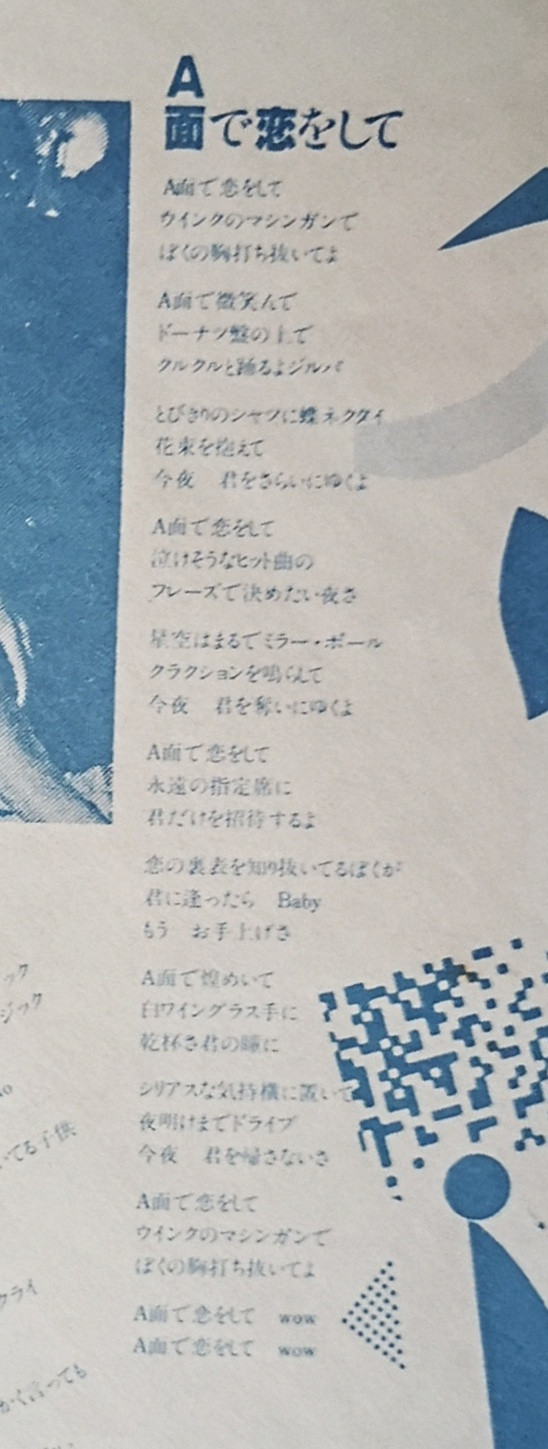 A
面で恋をして
A面で恋をして
ウインクのマシンガンで
ぼくの胸打ち抜いてよ
A面で微笑んで
ドーナツ盤の上で
クルクルと踊るよジルバ
とびきりのシャツに蝶ネクタイ
花束を抱えて
今夜　君をさらいにゆくよ
A面で恋をして
泣けそうなヒット曲の
フレーズで決めたい夜さ
星空はまるでミラー・ボール
クラクションを鳴らして
今夜　君を奪いにゆくよ
A面で恋をして
永遠の指定席に
君だけを招待するよ
恋の裏表を知り抜いてるぼくが
君に逢ったら　Baby
もう　お手上げさ
A面で煌めいて
白ワイングラス手に
乾杯さ君の瞳に
シリアスな気持横に置いて
夜明けまでドライブ
今夜　君を帰さないさ
A面で恋をして
ウインクのマシンガンで
ぼくの胸打ち抜いてよ
A面で恋をして　wow
A面で恋をして　wow
ック
ジック
いてる子供
クライ
かく言っても